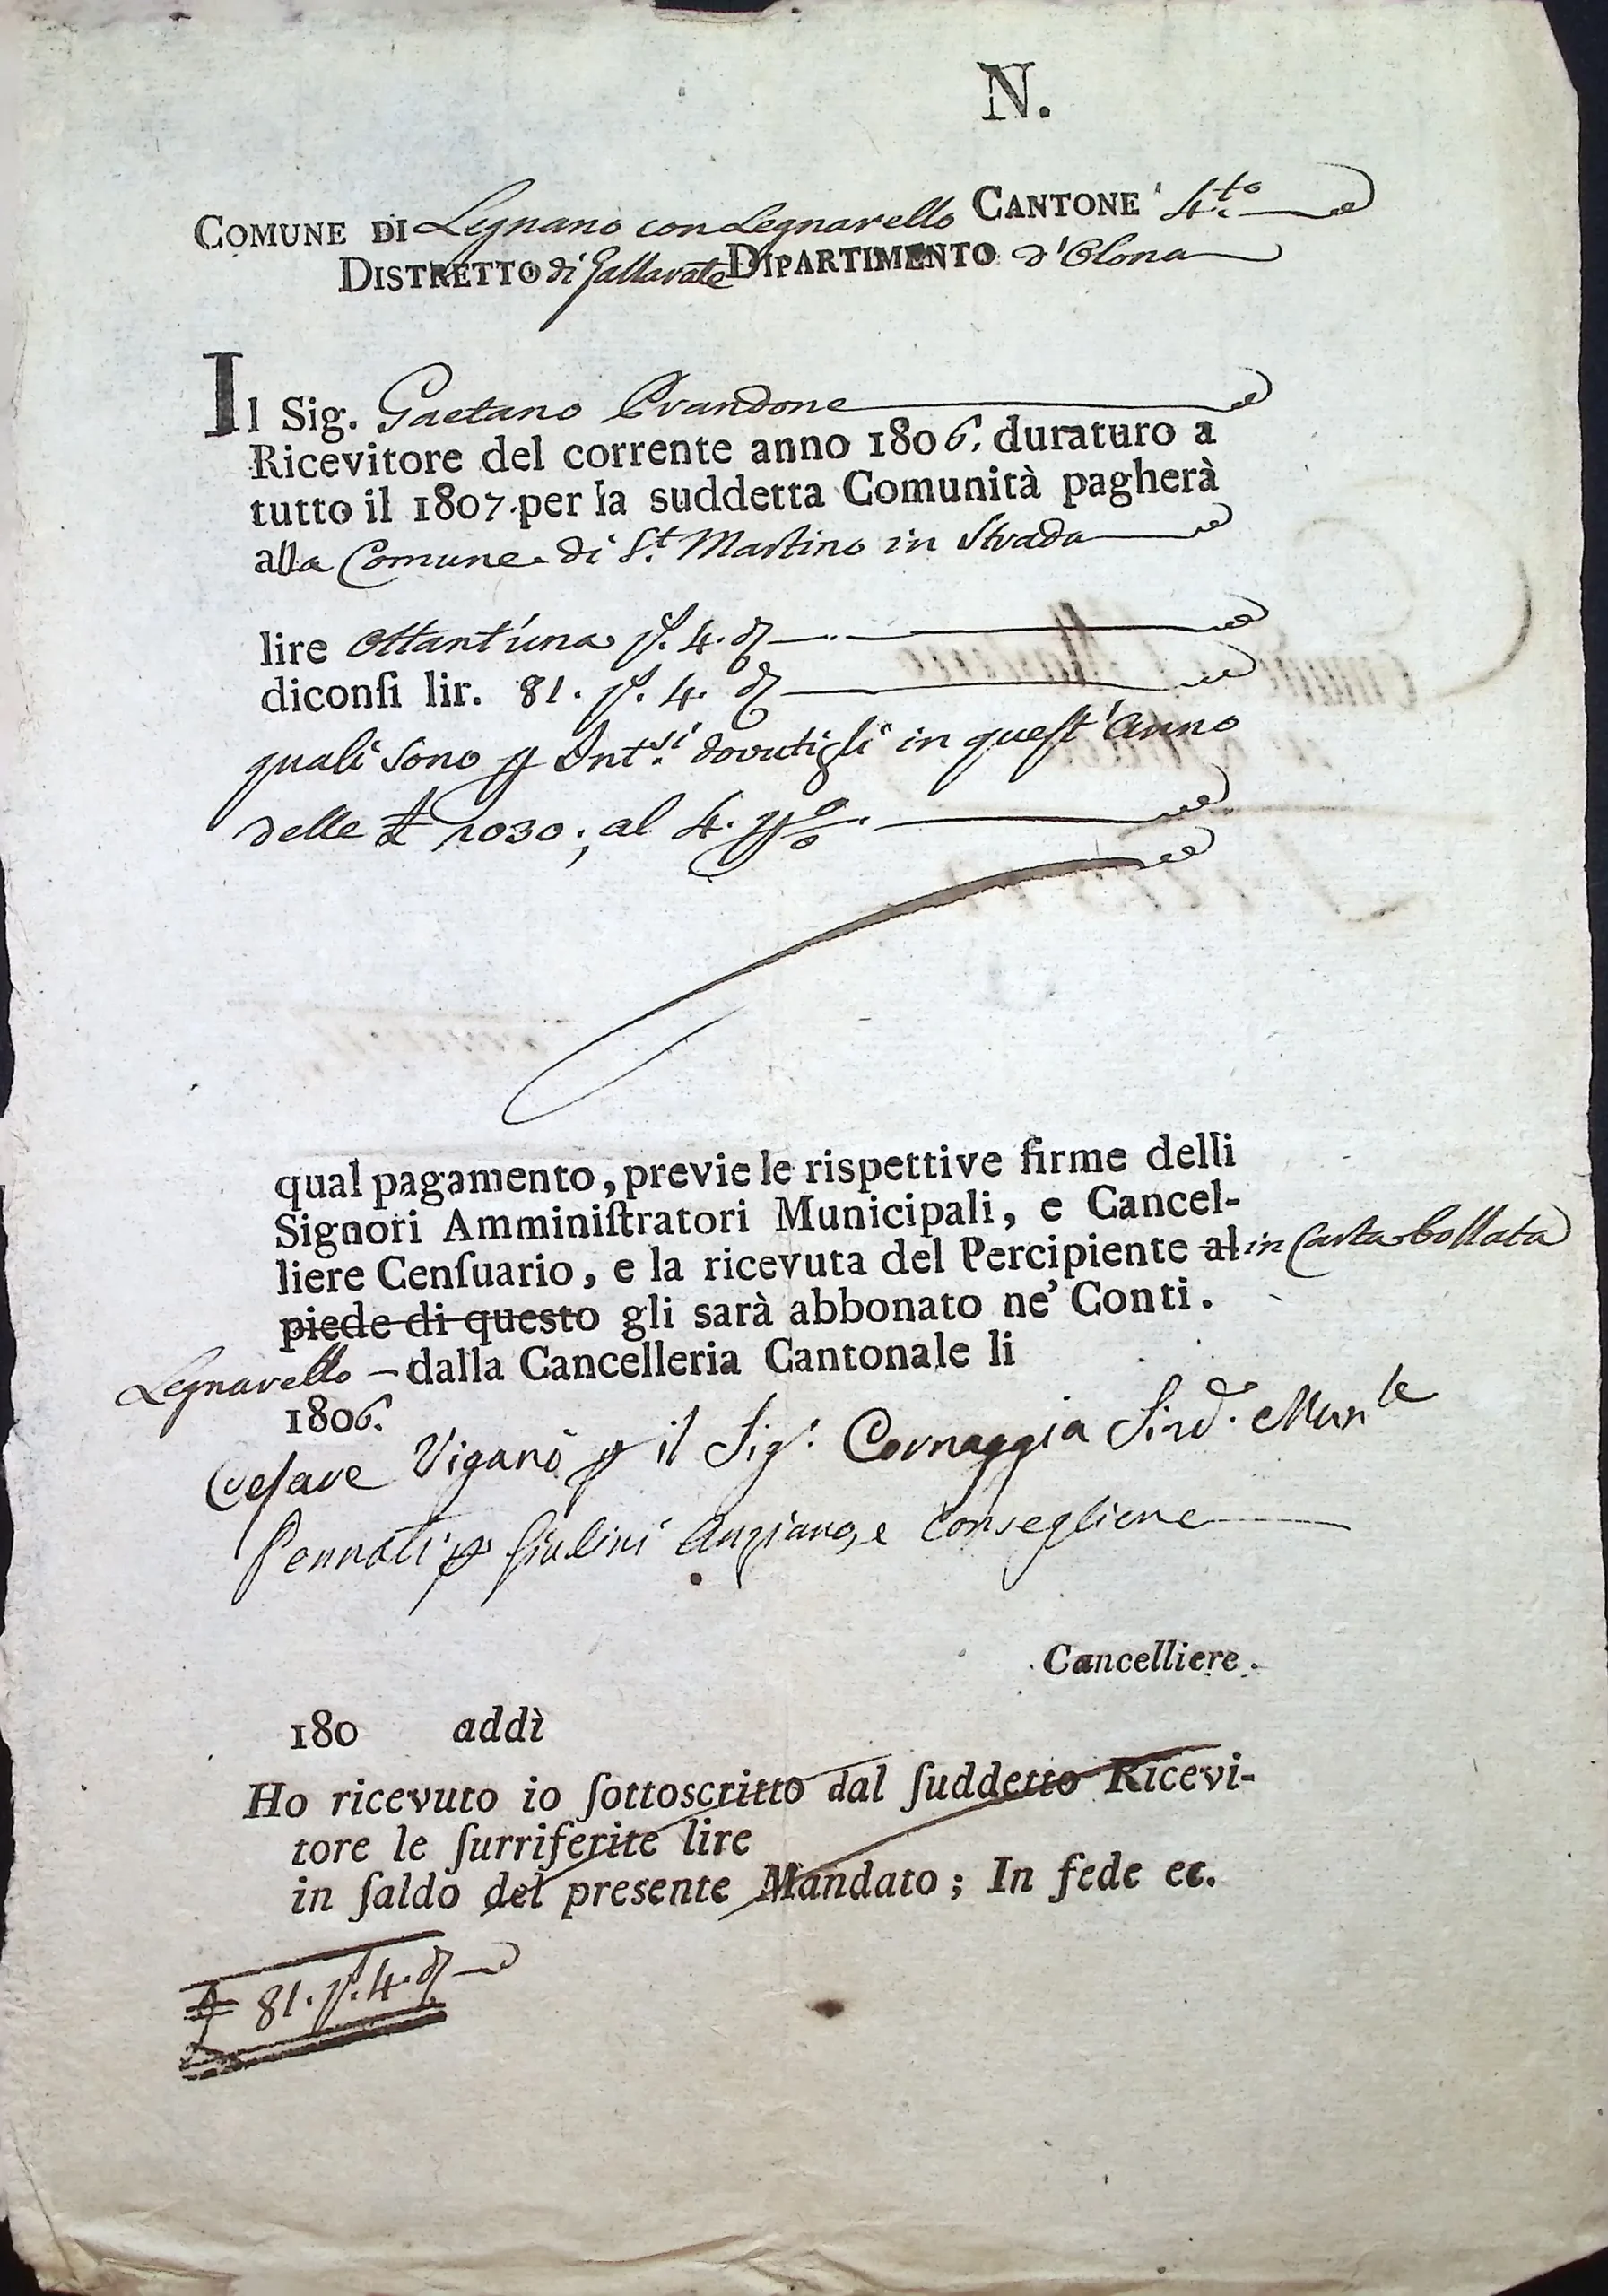 N.
COMUNE DI Legnano con Legnarello CANTONE 4.to
DISTRETTO di Gallarate DIPARTIMENTO d'Olona
Il Sig. Gaetano Prandone
Ricevitore del corrente anno 1806. duraturo a
tutto il 1807. per la suddetta Comunità pagherà
alla Comune di S.t Martino in Strada
lire Ottant'una ſ. 4. d
diconſi lir. 81. ſ. 4. d
quali sono p Int.si dovutigli in quest'anno
delle £ 2030; al 4. p%
qual pagamento, previe le rispettive firme delli
Signori Amminiſtratori Municipali, e Cancel-
liere Cenſuario, e la ricevuta del Percipiente al in Carta bollata
piede di questo gli sarà abbonato ne' Conti.
Legnarello – dalla Cancelleria Cantonale li
1806.
Cesare Viganò p il Sig.r Cornaggia Sind.co Mun.le
Pennati p Giulini Anziano, e Consegliere
Cancelliere.
180 addì
Ho ricevuto io ſottoscritto dal ſuddetto Ricevi-
tore le ſurriferite lire
in ſaldo del presente Mandato; In fede ec.
£ 81. ſ. 4. d